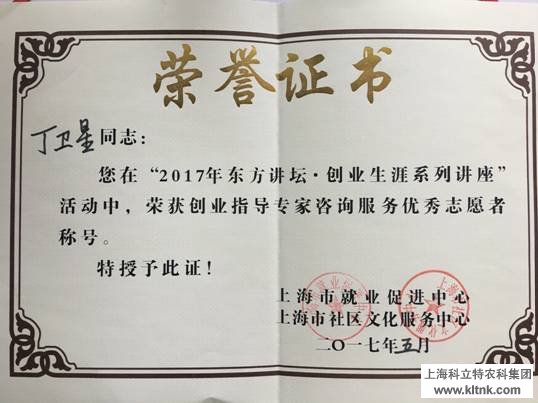 荣誉证书
丁卫星同志：
您在“2017年东方讲坛·创业生涯系列讲座”
活动中，荣获创业指导专家咨询服务优秀志愿者
称号。
特授予此证！
上海市就业促进中心
上海市社区文化服务中心
二〇一七年五月
上海科立特农科集团
www.kltnk.com